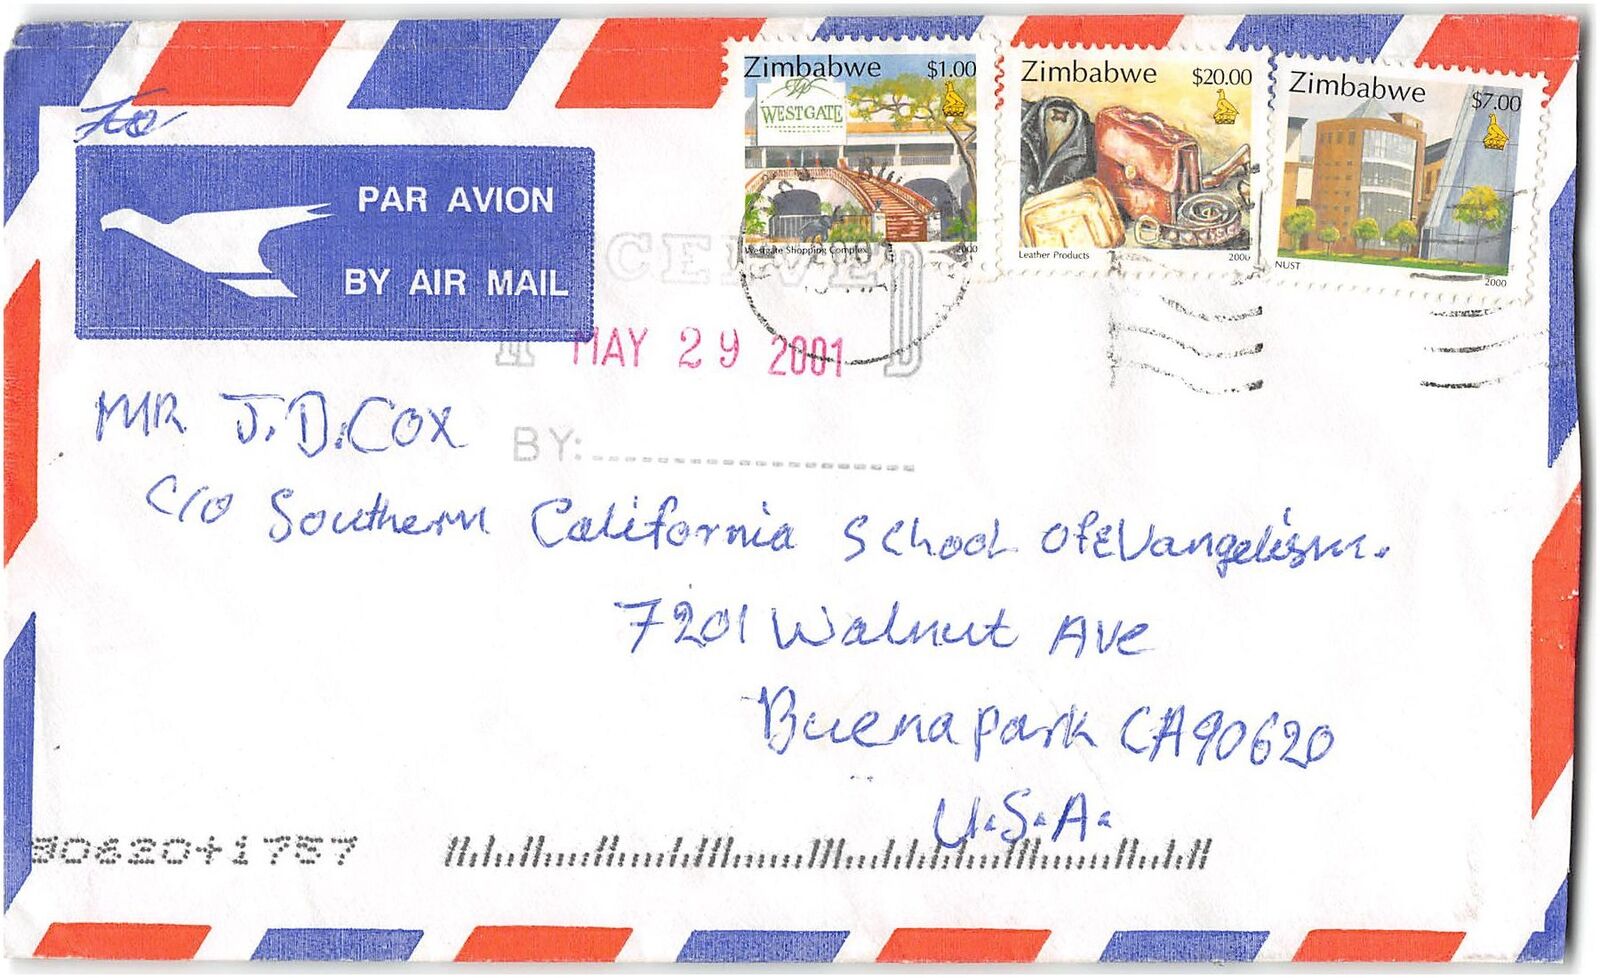 Zimbabwe $1.00
WESTGATE
Westgate Shopping Complex 2000
Zimbabwe $20.00
Leather Products 2000
Zimbabwe $7.00
NUST 2000
PAR AVION
BY AIR MAIL
MAY 29 2001
BY:
MR J.D. COX
C/O Southern California School of Evangelism.
7201 Walnut Ave
Buena Park CA 90620
U.S.A.
90620+1757